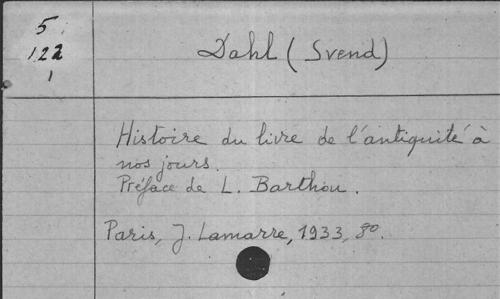 5
122
1
Dahl (Svend)
Histoire du livre de l'antiquité à
nos jours.
Préface de L. Barthou.
Paris, J. Lamarre, 1933, 8o.